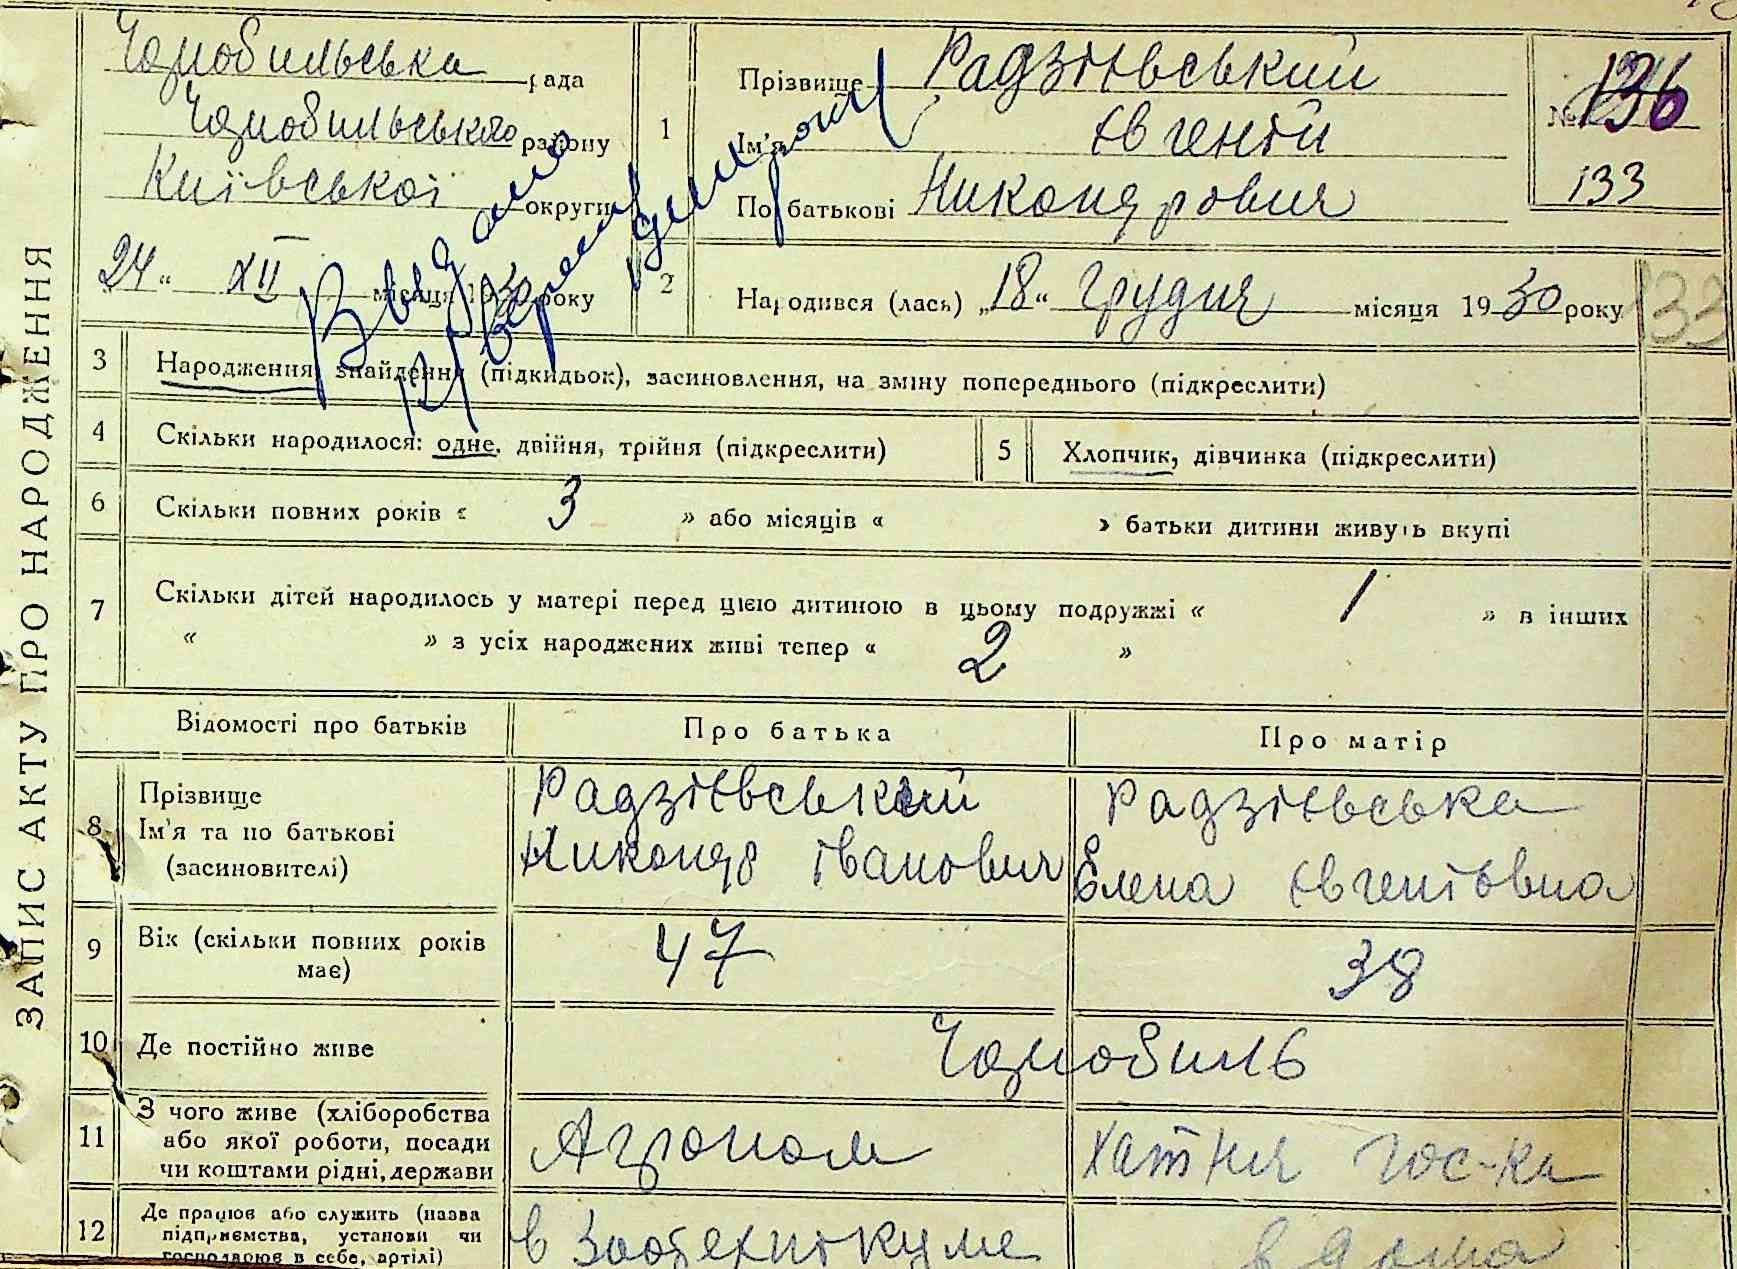 ЗАПИС АКТУ ПРО НАРОДЖЕННЯ
Чорнобильська рада
Чорнобильського району
Київської округи
„24“ XII місяця 1930 року
Видано
1
Прізвище Радзієвський
Ім'я Євгеній
По батькові Никондрович
№ 136
133
2
Народився (лась) „18“ Грудня місяця 1930 року
133
3 Народження, знайдення (підкидьок), засиновлення, на зміну попереднього (підкреслити)
4 Скільки народилося: одне, двійня, трійня (підкреслити)
5 Хлопчик, дівчинка (підкреслити)
6 Скільки повних років « 3 » або місяців « » батьки дитини живуть вкупі
7 Скільки дітей народилось у матері перед цією дитиною в цьому подружжі « 1 » в інших
« » з усіх народжених живі тепер « 2 »
Відомості про батьків Про батька Про матір
8 Прізвище
Ім'я та по батькові
(засиновителі)
Радзієвський
Никондр Іванович
Радзієвська
Елена Євгенієвна
9 Вік (скільки повних років
має)
47
38
10 Де постійно живе Чорнобиль
11 З чого живе (хліборобства
або якої роботи, посади
чи коштами рідні, держави
Агроном
Хатня гос-ка
12 Де працює або служить (назва
підприємства, установи чи
господарює в себе, артілі)
в Зоотехнікуме
в дома